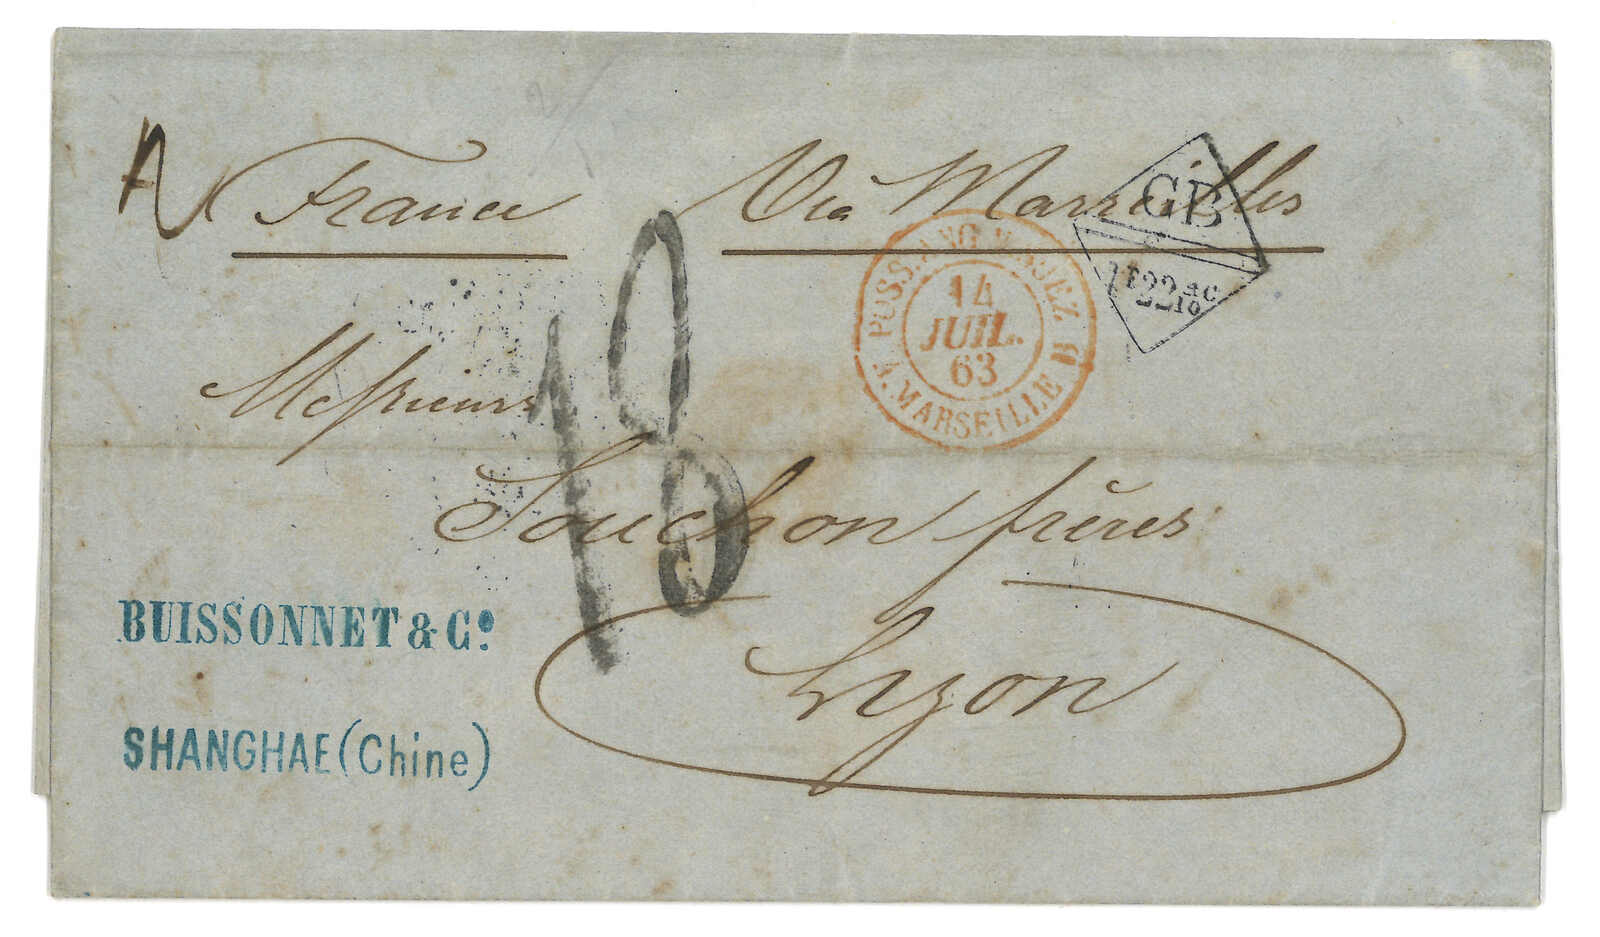 France Via Marseilles
GB
1F 22 AC
10
POSS. ANG. V. SUEZ A. MARSEILLE
14
JUIL.
63
Messieurs
18
Souchon frères
Lyon
BUISSONNET & Cº
SHANGHAE (Chine)